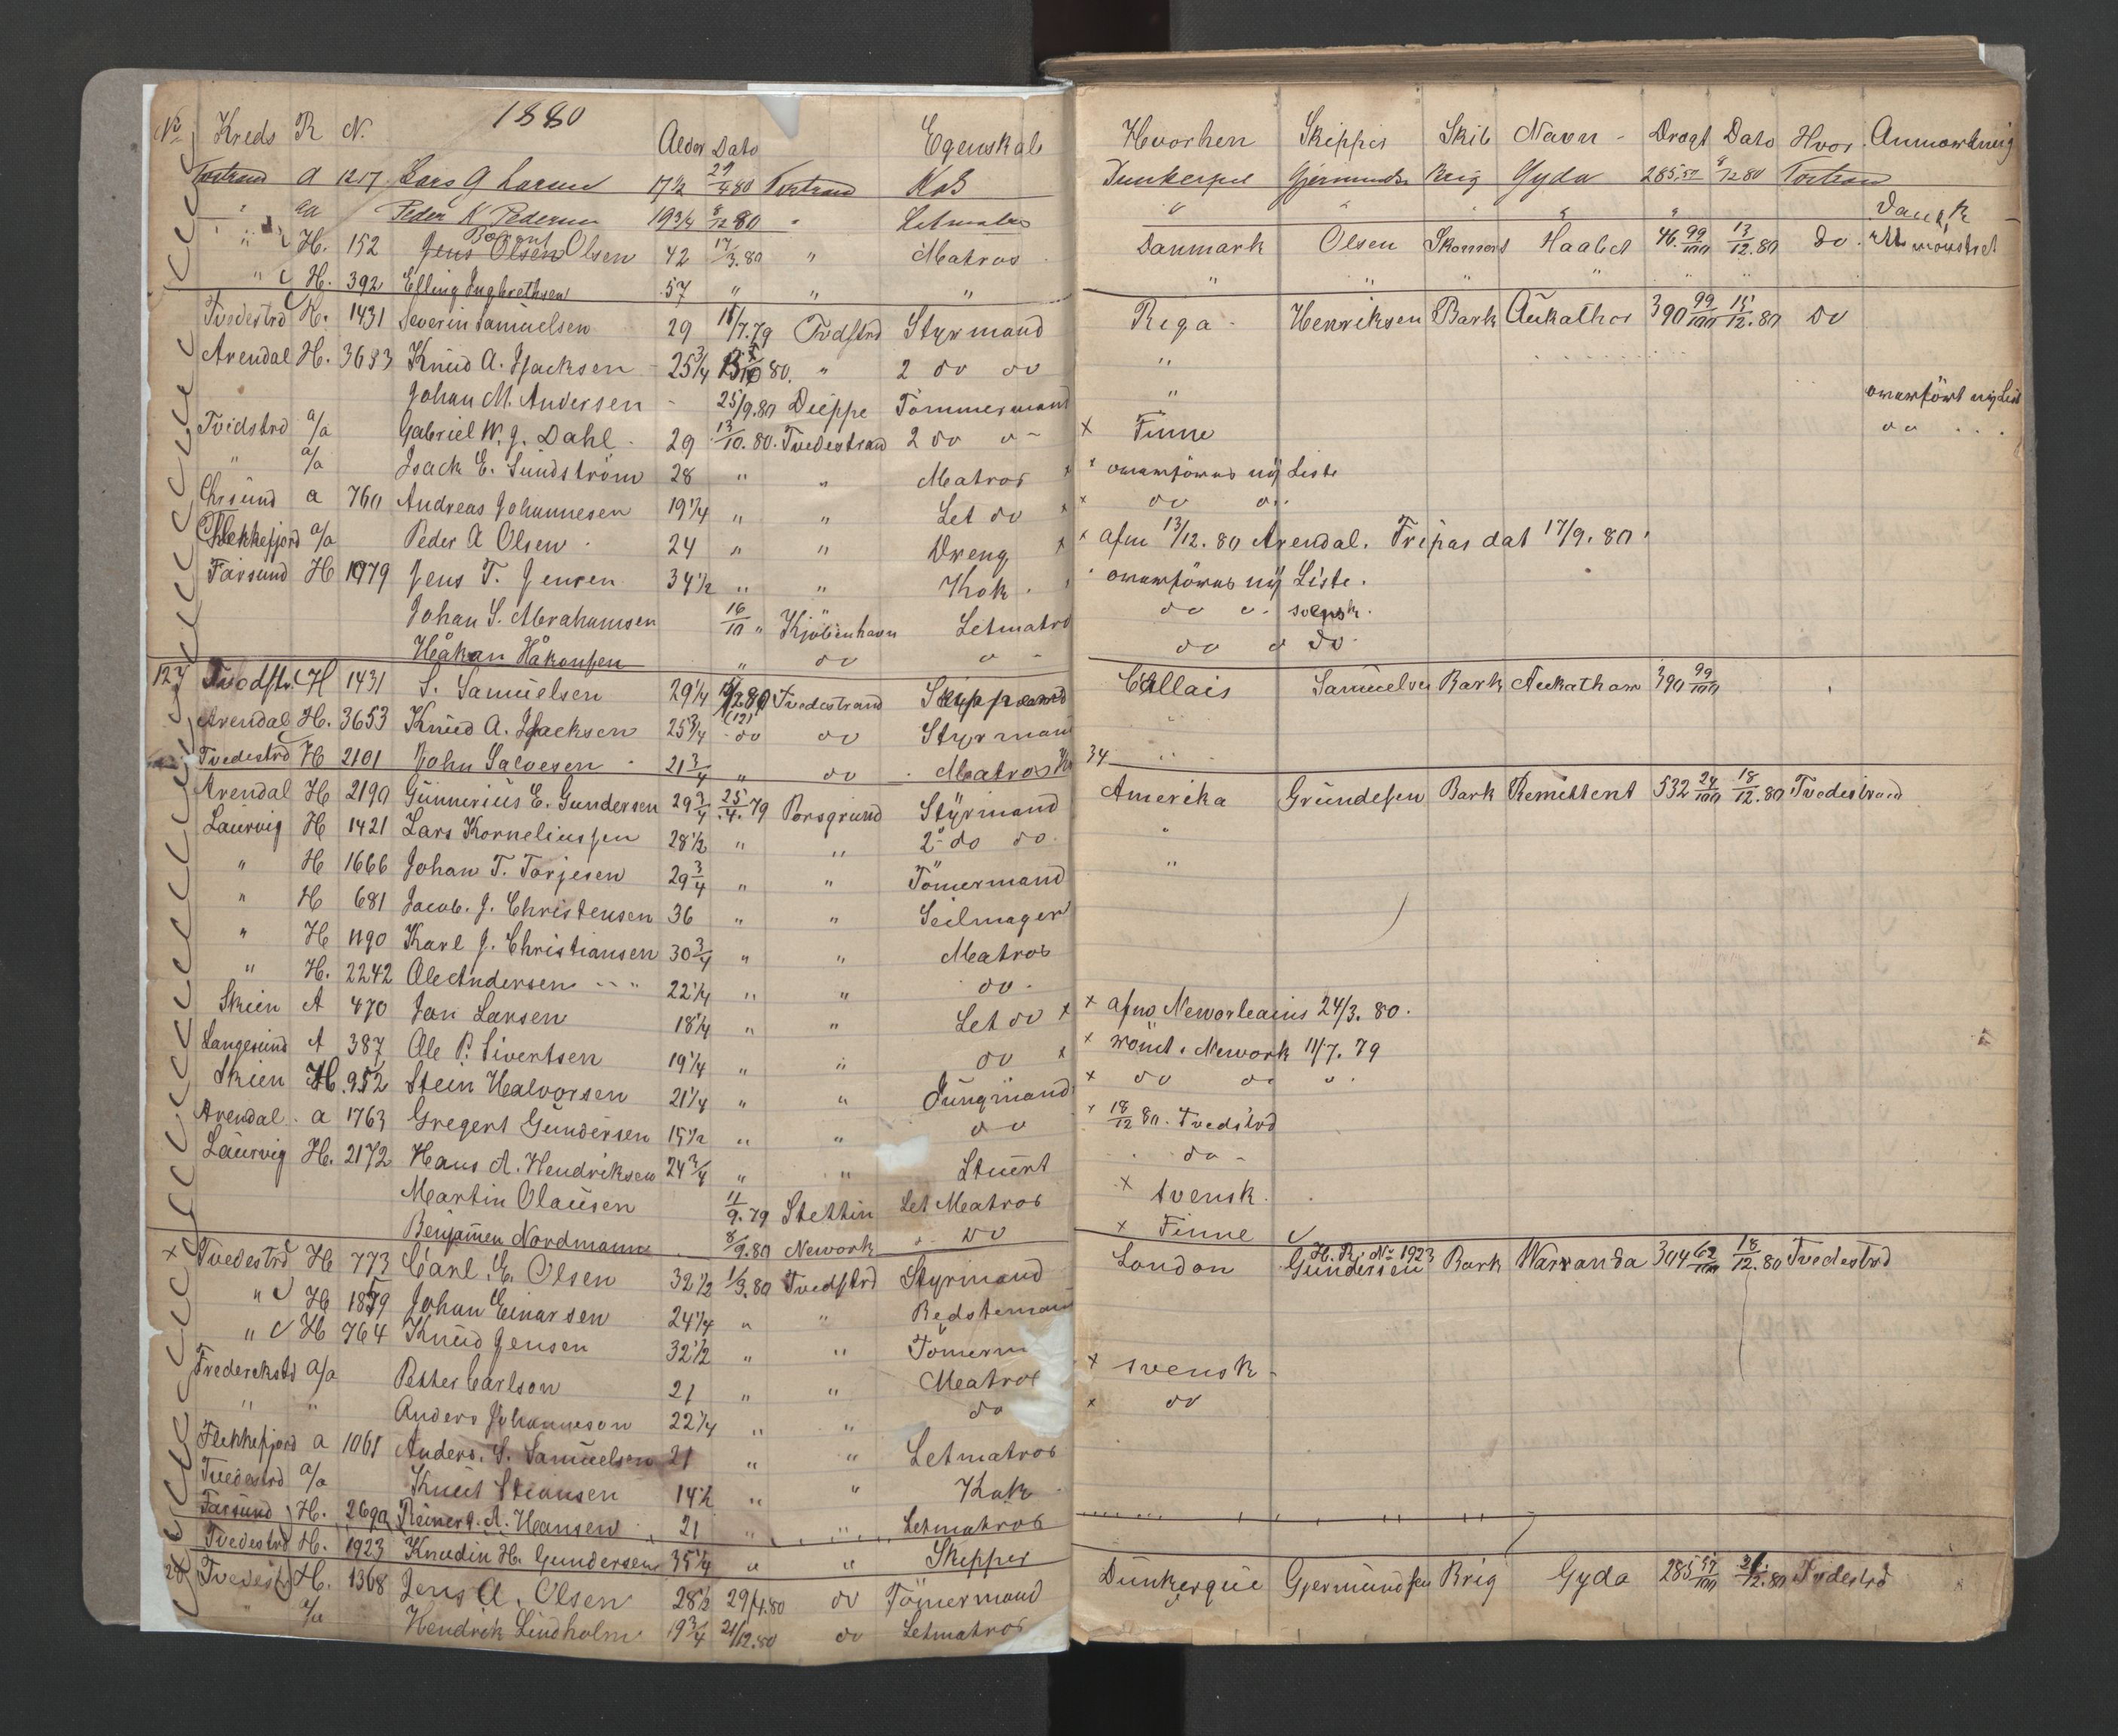 1880
No Kreds R N. Alder Dato Egenskab Hvorhen Skipper Skib Navn - Drægt Dato Hvor Anmærkning
a 1217 Lars G Larsen 17½ 29/4 80 Kok Gyda 285,57 8/12 80
aa Peder K Pedersen 19¾ 8/12 80 " Letmatros " " " " " Dansk
" H. 152 Jens Olsen Olsen 42 17/3.80 " Matros Danmark Olsen Haabet 46.99/100 13/12.80 do.
" H. 392 Elling Ingbrethsen 57 " " " " " " " "
Tvedestrd H. 1431 Severin Samuelsen 29 /7.79 Tvdstrd Styrmand Riga - Henriksen Bark Aukathor 390 99/100 15/12.80 do
Arendal H. 3653 Knud A. Isacksen 25¾ 80. " 2 do do "
Johan M. Andersen - 25/9.80 Dieppe Tömmermand " ny List
Tvidstrd a/a Gabriel W. J. Dahl. 29 13/10.80. Tvedestrand 2 do o - x Finne do . . .
" a/a Isack E. Sundström 28 " " Matros x x ny Liste
Chrsund a 760 Andreas Johannesen 19¼ " " Let do x x do do
Flekkefjord a/a Peder A Olsen 24 " " Dreng x x afm 13/12.80 Arendal. Fripas dat 17/9.80.
Farsund H 1979 Jens T. Jensen 34½ " " Kok. ny Liste.
Johan S. Abrahamsen 16/10 " Kjöbenhavn Letmatrs do o. svensk.
Håkan Håkonsen " do o - do o do.
127 Tvedstr. H 1431 S. Samuelsen 29¼ Tvedestrand Callais Samuelsen Bark Aukathor 390 99/100
Arendal H. 3653 Knud A. Isacksen 25¾ do do Styrmand
Tvedestrd H 2101 John Salvesen 21¾ " do . Matros 34
Arendal H 2190 Gunnerius E. Gundersen 29¾ 25/4.79 Porsgrund Styrmand Amerika Gundesen Bark Remittent 532 24/100 18/12.80 Tvedestrand
Laurvig H 1421 Lars Korneliussen 28½ " " 2 do do. "
" H 1666 Johan T. Torjesen 29¾ " " Tömermand "
" H 681 Jacob. J. Christensen 36 " " Seilmager
" H 1190 Karl J. Christiansen 30¾ " " Matros
" H. 2242 Ole Andersen 22¼ " " do.
Skien A 470 Jan Larsen 18¼ " " Let do x x Neworleains 24/3.80.
Langesund A 387 Ole P. Sivertsen 19¼ " " do x x römt. Nework 11/7.79
Skien H. 952 Stein Halvorsen 21¼ " " Jungmand x do do o.
Arendal. a 1763 Gregert Gundersen 15½ " " do x 18/12 80. Tvedstrd
Laurvig H. 2172 Hans A. Hendriksen 24¾ " " Stuert . do -
Martin Olausen 11/9.79 Stettin Let Matros x svensk.
Benjamen Nordmann 8/9.80 Nework do x Finne
H. R. No 1923
x Tvedestrd H 773 Carl. E. Olsen 32½ 1/9.80 Tvedstrd Styrmand London Gundersen Bark Warranda 304 62/100 18/12.80 Tvedestrd
" H Johan Einarsen 24¼ " "
" H 764 Knud Jensen 32½ " "
Frederekstd a/a Petter Carlson 21 " " Matros x svensk -
" " Anders Johanneson 22¼ " " do x do
Flekkefjord a 1061 Anders. S. Samuelsen 21 " " Letmatros
Tvedestrd a/a Knut 14½ " " Kok
Farsund H. 2690 Reinert. A. Hansen 21 " " Letmatros
Tvedestrd H. 1923 Knudin H. Gundersen 35¼ " " Skipper
Tvedestr H. 1368 Jens A. Olsen 28½ 29/4.80 do Tömermand Dunkerque Gjermundsen Brig Gyda 285 57/100 21/12.80 Tvdestrd
" a/a Hendrik Lindholm 19¾ 21/12.80 do Letmatros